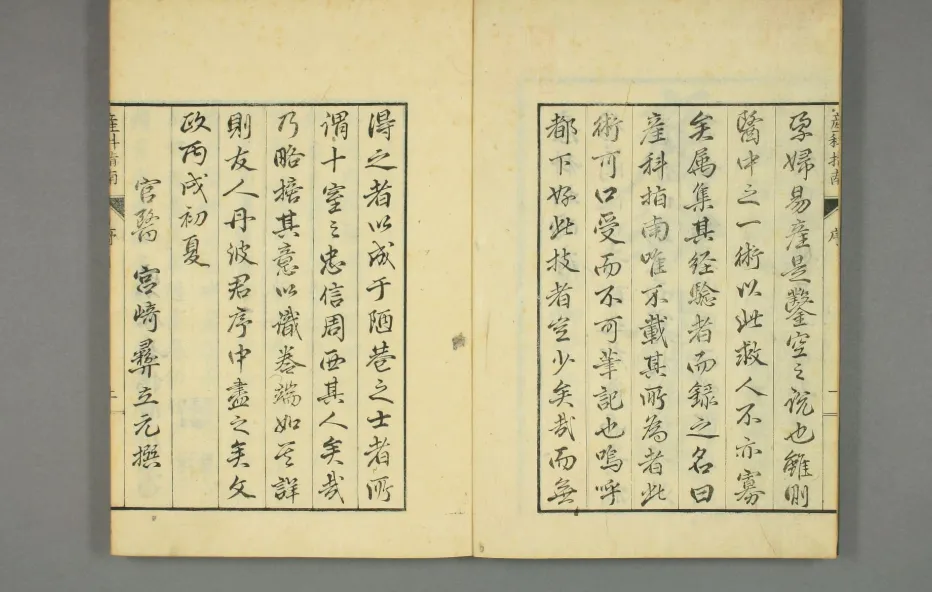 産科指南
序
一
孕婦易産是鑿空之説也雖則
醫中之一術以此救人不亦寡
矣属集其経驗者而録之名曰
産科指南唯不載其所為者此
術可口受而不可筆記也嗚呼
都下好此技者豈少矣哉而無
得之者以成于陋巷之士者所
謂十室之忠信周西其人矣哉
乃略捂其意以識巻端如其詳
則友人丹波君序中盡之矣文
政丙戌初夏
官醫 宮﨑彝立元撰
産科指南
序
二